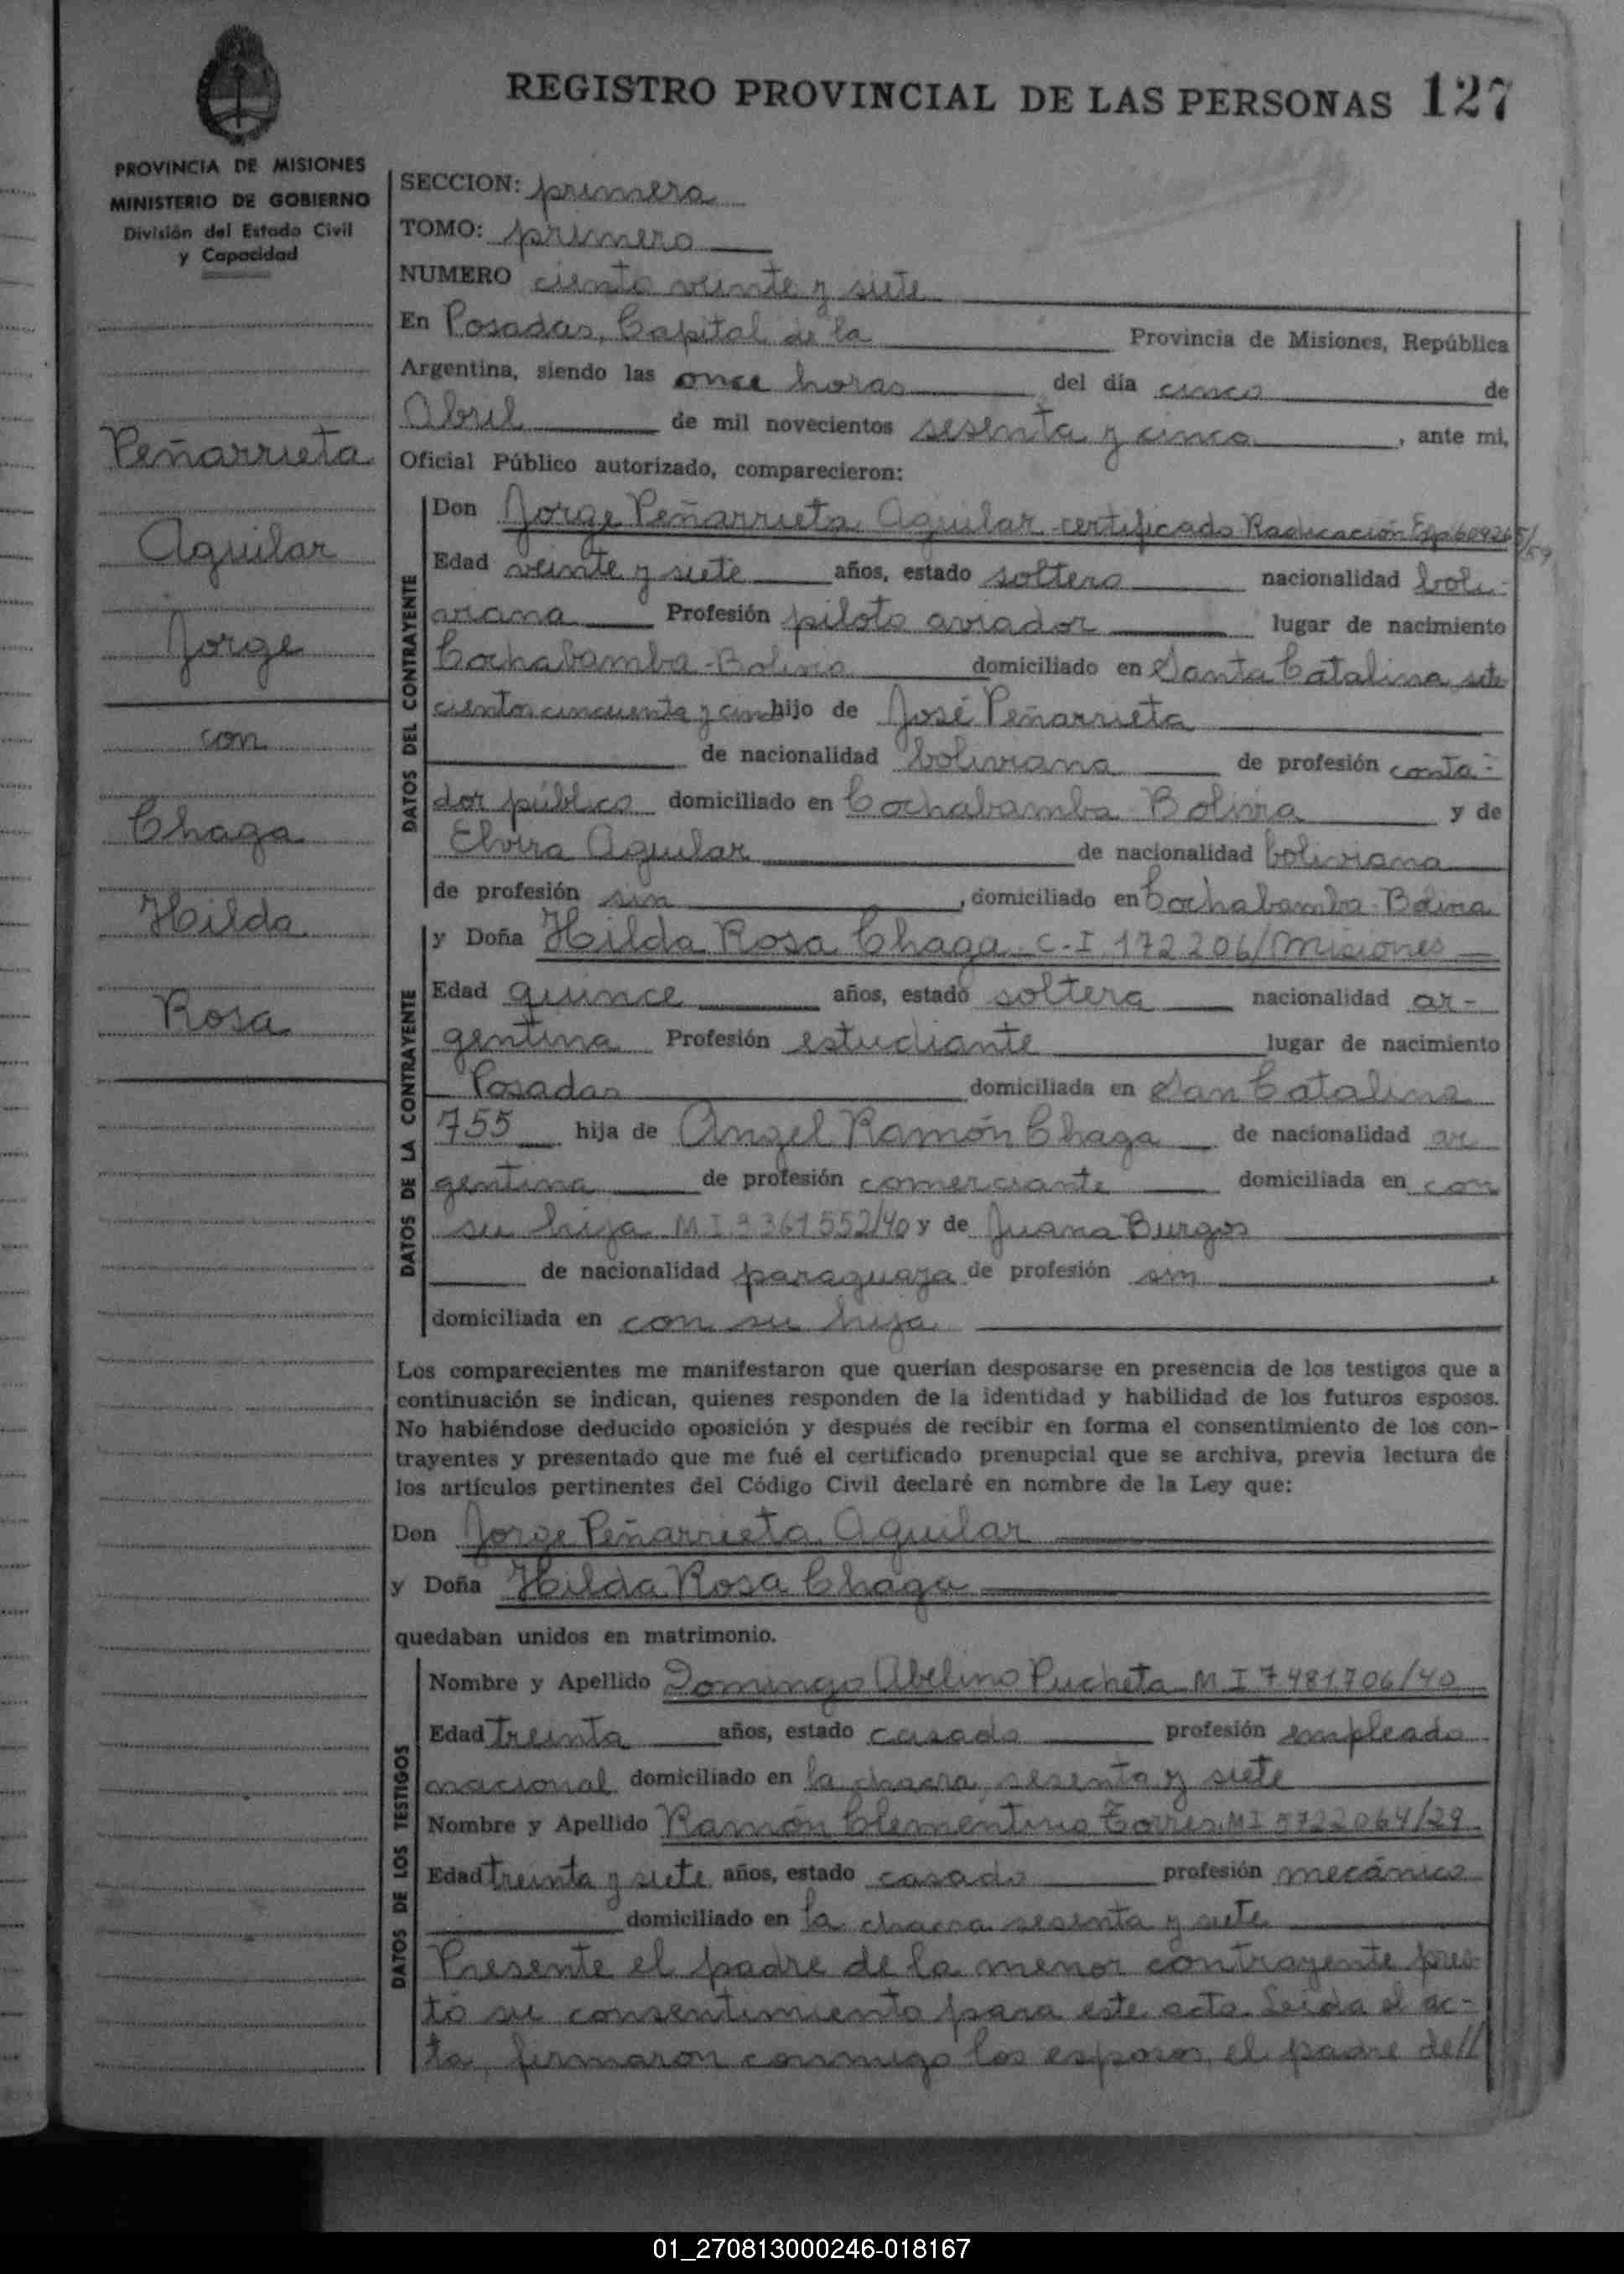 REGISTRO PROVINCIAL DE LAS PERSONAS 127
PROVINCIA DE MISIONES
MINISTERIO DE GOBIERNO
División del Estado Civil
y Capacidad
Peñarrieta
Aguilar
Jorge
con
Chaga
Hilda
Rosa
SECCION: primera
TOMO: primero
NUMERO ciento veinte y siete
En Posadas, Capital de la Provincia de Misiones, República
Argentina, siendo las once horas del día cinco de
Abril de mil novecientos sesenta y cinco, ante mi,
Oficial Público autorizado, comparecieron:
DATOS DEL CONTRAYENTE
Don Jorge Peñarrieta Aguilar certificado Radicación Exp 609265/59
Edad veinte y siete años, estado soltero nacionalidad boli-
viana Profesión piloto aviador lugar de nacimiento
Cochabamba-Bolivia domiciliado en Santa Catalina sete
cientos cincuenta y cinco hijo de José Peñarrieta
de nacionalidad boliviana de profesión conta-
dor público domiciliado en Cochabamba Bolivia y de
Elvira Aguilar de nacionalidad boliviana
de profesión sin, domiciliado en Cochabamba-Bolivia
DATOS DE LA CONTRAYENTE
y Doña Hilda Rosa Chaga C.I 172206/Misiones
Edad quince años, estado soltera nacionalidad ar-
gentina Profesión estudiante lugar de nacimiento
Posadas domiciliada en San Catalina
755 hija de Angel Ramón Chaga de nacionalidad ar
gentina de profesión comerciante domiciliada en con
su hija M.I. 3361552/40 y de Juana Burgos
de nacionalidad paraguaya de profesión sin,
domiciliada en con su hija
Los comparecientes me manifestaron que querían desposarse en presencia de los testigos que a
continuación se indican, quienes responden de la identidad y habilidad de los futuros esposos.
No habiéndose deducido oposición y después de recibir en forma el consentimiento de los con-
trayentes y presentado que me fué el certificado prenupcial que se archiva, previa lectura de
los artículos pertinentes del Código Civil declaré en nombre de la Ley que:
Don Jorge Peñarrieta Aguilar
y Doña Hilda Rosa Chaga
quedaban unidos en matrimonio.
DATOS DE LOS TESTIGOS
Nombre y Apellido Domingo Abelino Pucheta M I 7481706/40
Edad treinta años, estado casado profesión empleado
nacional domiciliado en la chacra sesenta y siete
Nombre y Apellido Ramón Clementino Torres MI 5722064/29
Edad treinta y siete años, estado casado profesión mecánico
domiciliado en la chacra sesenta y siete
Presente el padre de la menor contrayente pres-
tó su consentimiento para este acto. Leída el ac-
ta, firmaron conmigo los esposos, el padre de//
01_270813000246-018167